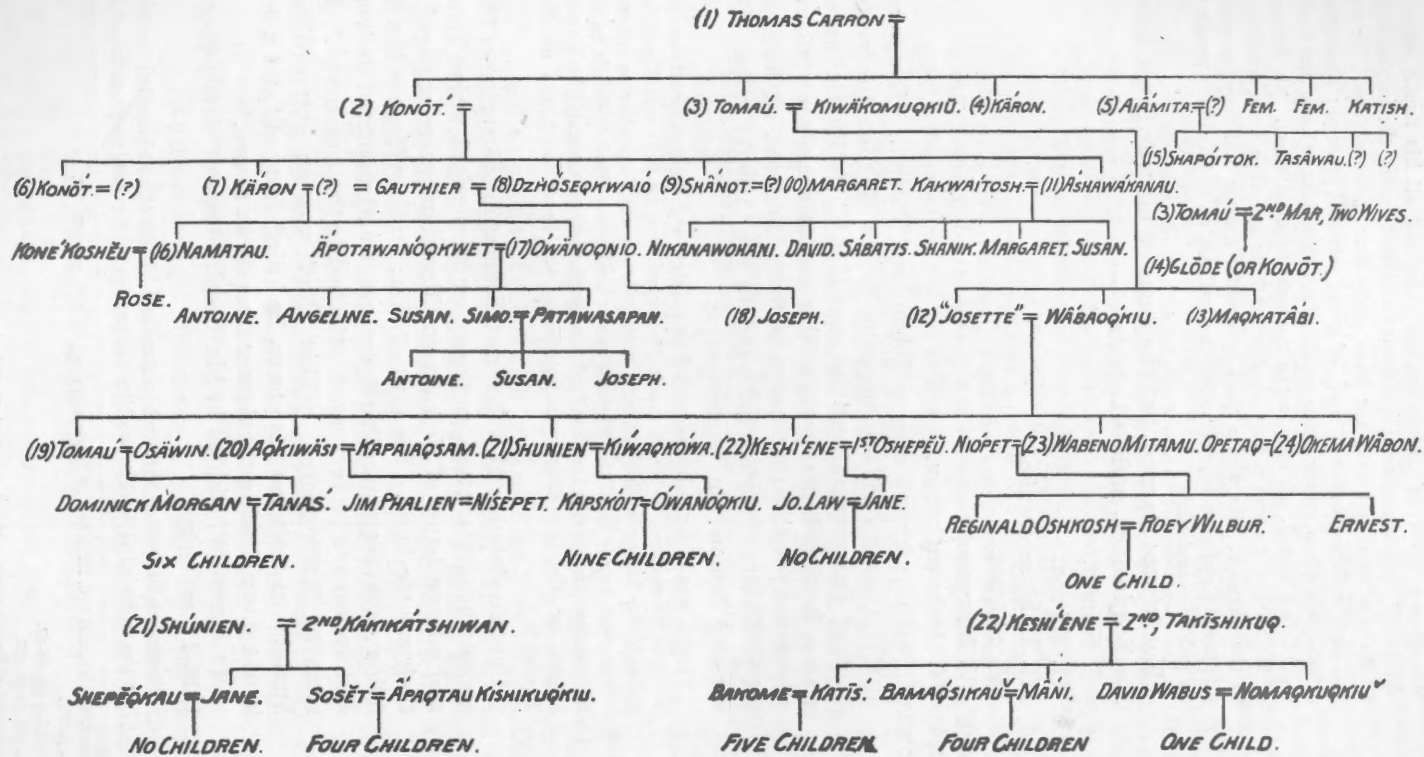 (1) THOMAS CARRON =
(2) KONŌT.́ = (3) TOMAÚ. = KIWÄKOMUQKIŪ. (4) KÄRON. (5) AIÄMITA = (?) FEM. FEM. KATISH.
(15) SHAPÓITOK. TASÄWAU. (?) (?)
(6) KONŌT́. = (?) (7) KÄRON = (?) = GAUTHIER = (8) DZHŌSEQKWAIÓ (9) SHÂNOT. = (?) (10) MARGARET. KAKWAITOSH. = (11) ÁSHAWÁKANAU.
(3) TOMAÚ = 2ND MAR, TWO WIVES.
KONÉKOSHĔU = (16) NAMATAU. ÄPOTAWANÓQKWET = (17) ÓWÄNOQNIO. NIKANAWOHANI. DAVID. SÁBATIS. SHANIK. MARGARET. SUSAN.
(14) GLŌDE (OR KONŌT.)
ROSE. ANTOINE. ANGELINE. SUSAN. SIMO. = PATAWASAPAN. (18) JOSEPH. (12) "JOSETTE" = WÄBAOQ́KIU. (13) MAQKATÂBI.
ANTOINE. SUSAN. JOSEPH.
(19) TOMAÚ = OSÄWIN. (20) AQ́KIWÄSI = KAPAIÁQSAM. (21) SHUNIEN = KIẂAQKÓWA. (22) KESHÍENE = 1ST OSHEPĔŪ. NIÓPET = (23) WABENO MITAMU. OPETAQ = (24) OKEMA WÂBON.
DOMINICK MORGAN = TANAŚ. JIM PHALIEN = NÍSEPET. KAPSKÓIT = ÓWANÓQKIU. JO. LAW = JANE.
REGINALD OSHKOSH = ROEY WILBUR. ERNEST.
SIX CHILDREN. NINE CHILDREN. NO CHILDREN.
ONE CHILD.
(21) SHÚNIEN. = 2ND, KÁKIKÁTSHIWAN. (22) KESHÍENE = 2ND, TAKĪSHIKUQ.
SHEPĔQ́KAU = JANE. SOSĔT́ = ÂPAQTAU KÍSHIKUQKIU. BAKOME = KATĪŚ. BAMAQ́SIKAU = MÂNI. DAVID WABUS = NOMAQKUQKIU
NO CHILDREN. FOUR CHILDREN. FIVE CHILDREN. FOUR CHILDREN ONE CHILD.